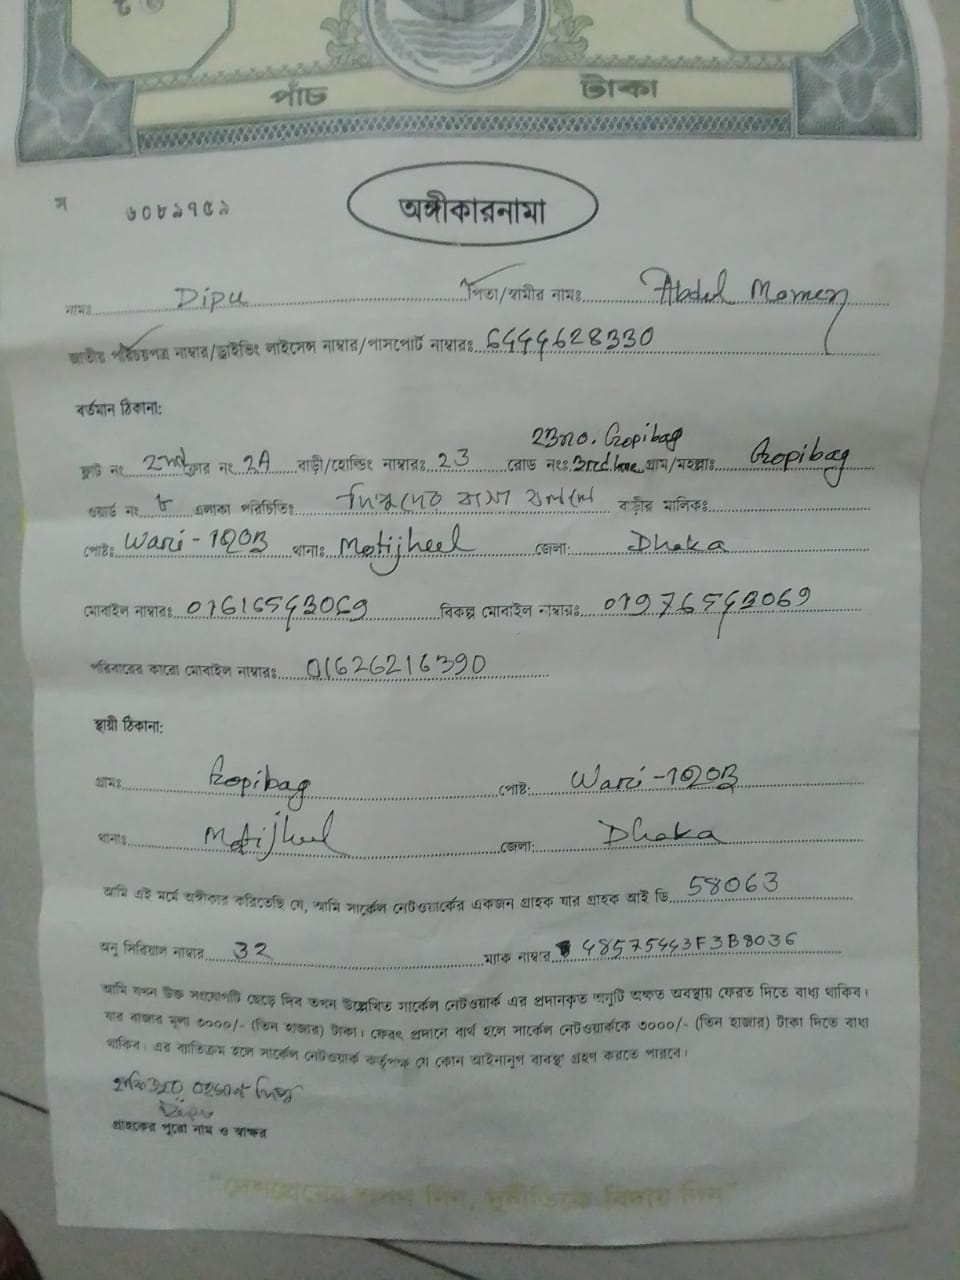 পাঁচ টাকা
স ৬০৮৯৭৫৯
অঙ্গীকারনামা
নামঃ Dipu পিতা/স্বামীর নামঃ Abdul Momen
জাতীয় পরিচয়পত্র নাম্বার/ড্রাইভিং লাইসেন্স নাম্বার/পাসপোর্ট নাম্বারঃ 6444628330
বর্তমান ঠিকানা:
23 no. Gopibag
ফ্লাট নং 2nd ফ্লোর নং 2A বাড়ী/হোল্ডিং নাম্বারঃ 23 রোড নংঃ 3rd lane গ্রাম/মহল্লাঃ Gopibag
ওয়ার্ড নং ৮ এলাকা পরিচিতিঃ বাসা বাড়ীর মালিকঃ
পোষ্টঃ Wari - 1203 থানাঃ Motijheel জেলা: Dhaka
মোবাইল নাম্বারঃ 01616543069 বিকল্প মোবাইল নাম্বারঃ 01976543069
পরিবারের কারো মোবাইল নাম্বারঃ 01626216390
স্থায়ী ঠিকানা:
গ্রামঃ Gopibag পোষ্ট: Wari - 1203
থানাঃ Motijheel জেলা: Dhaka
আমি এই মর্মে অঙ্গীকার করিতেছি যে, আমি সার্কেল নেটওয়ার্কের একজন গ্রাহক যার গ্রাহক আই ডি 58063
অনু সিরিয়াল নাম্বার 32 ম্যাক নাম্বার 48575443F3B8036
আমি যখন উক্ত সংযোগটি ছেড়ে দিব তখন উল্লেখিত সার্কেল নেটওয়ার্ক এর প্রদানকৃত অনুটি অক্ষত অবস্থায় ফেরত দিতে বাধ্য থাকিব।
যার বাজার মূল্য ৩০০০/- (তিন হাজার) টাকা। ফেরৎ প্রদানে ব্যর্থ হলে সার্কেল নেটওয়ার্ককে ৩০০০/- (তিন হাজার) টাকা দিতে বাধ্য
থাকিব। এর ব্যতিক্রম হলে সার্কেল নেটওয়ার্ক কর্তৃপক্ষ যে কোন আইনানুগ ব্যবস্থা গ্রহণ করতে পারবে।
Dipu
গ্রাহকের পুরো নাম ও স্বাক্ষর
"দেশপ্রেমের শপথ নিন, দুর্নীতিকে বিদায় দিন"